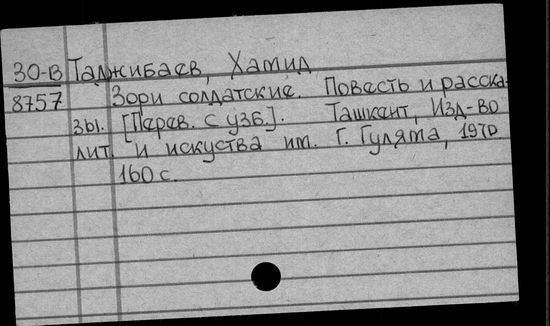 30-В Таджибаев, Хамид
8757 Зори солдатские. Повесть и расска-
зы. [Перев. с узб.]. Ташкент, Изд-во
лит. и искуства им. Г. Гуляма, 1970
160 с.